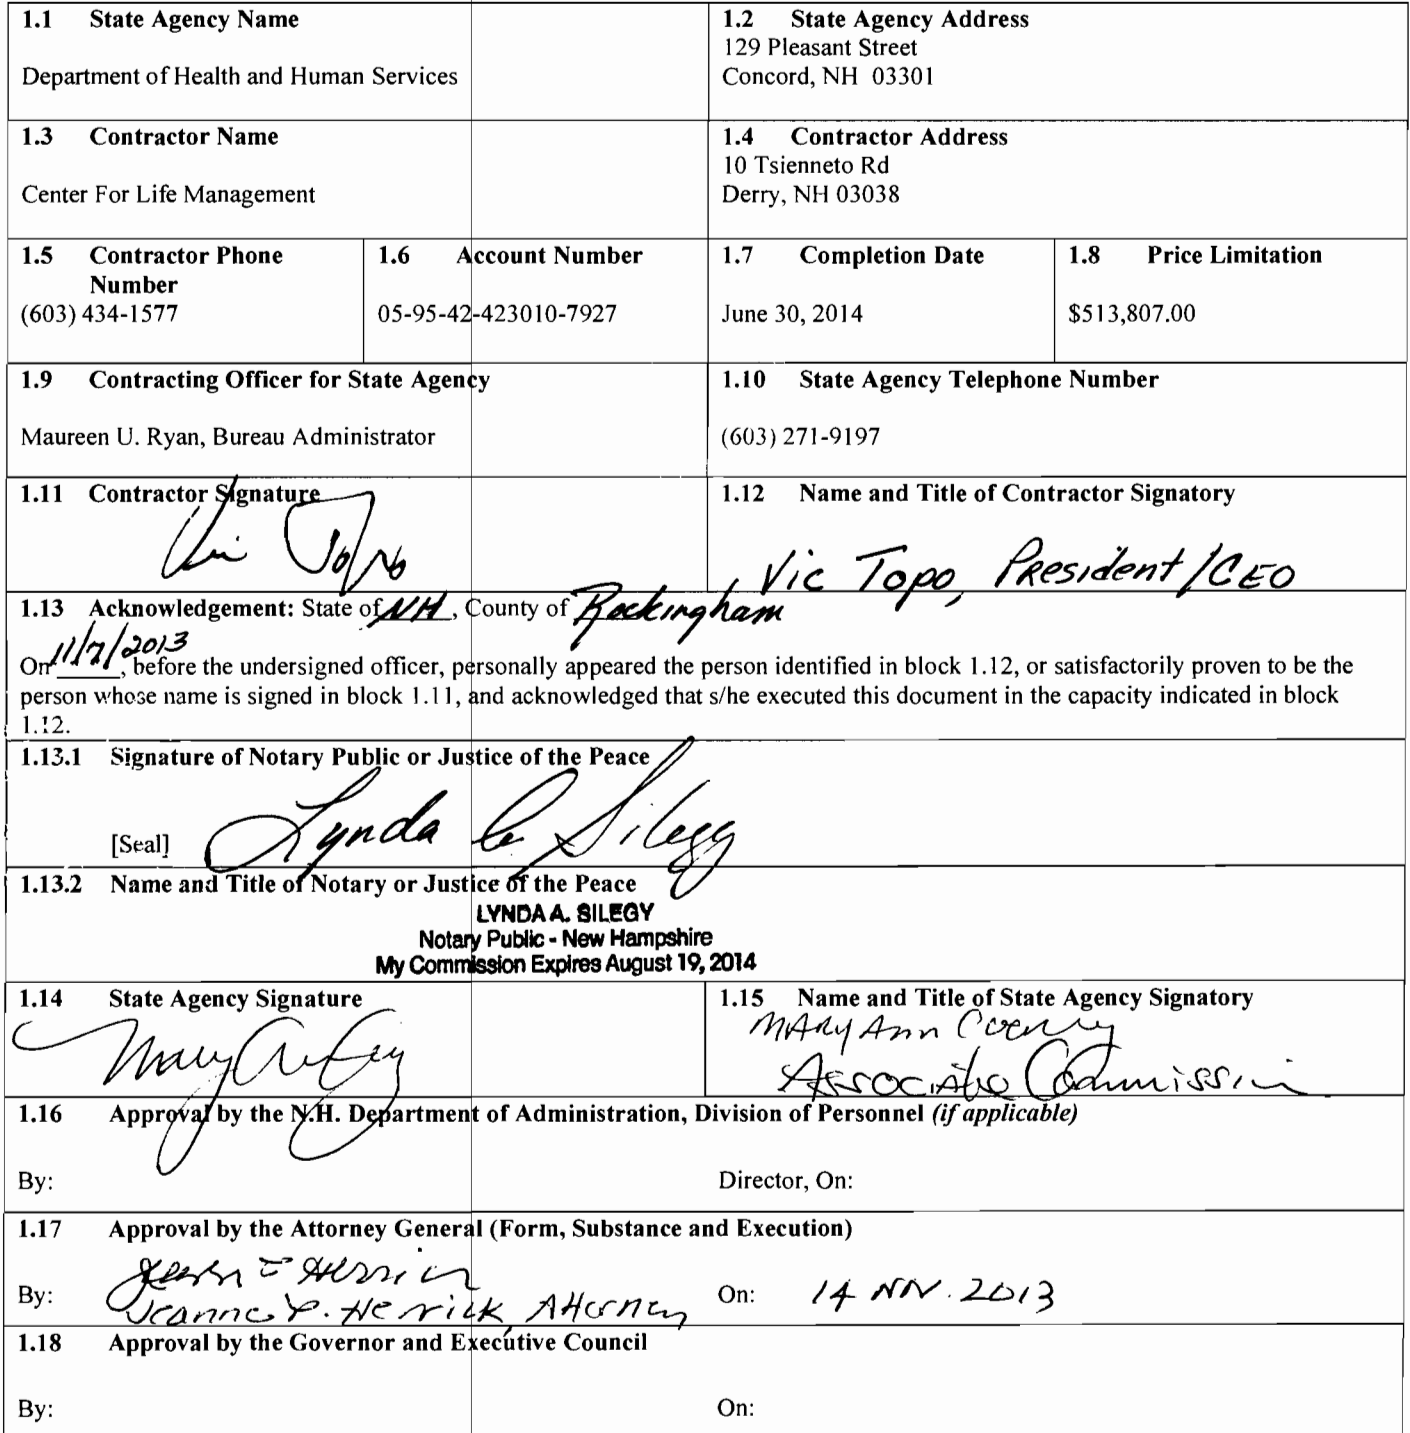 1.1 State Agency Name
Department of Health and Human Services
1.2 State Agency Address
129 Pleasant Street
Concord, NH 03301
1.3 Contractor Name
Center For Life Management
1.4 Contractor Address
10 Tsienneto Rd
Derry, NH 03038
1.5 Contractor Phone
Number
(603) 434-1577
1.6 Account Number
05-95-42-423010-7927
1.7 Completion Date
June 30, 2014
1.8 Price Limitation
$513,807.00
1.9 Contracting Officer for State Agency
Maureen U. Ryan, Bureau Administrator
1.10 State Agency Telephone Number
(603) 271-9197
1.11 Contractor Signature
Vic Topo
1.12 Name and Title of Contractor Signatory
Vic Topo, President/CEO
1.13 Acknowledgement: State of NH, County of Rockingham
On 11/7/2013, before the undersigned officer, personally appeared the person identified in block 1.12, or satisfactorily proven to be the
person whose name is signed in block 1.11, and acknowledged that s/he executed this document in the capacity indicated in block
1.12.
1.13.1 Signature of Notary Public or Justice of the Peace
[Seal] Lynda A Silegy
1.13.2 Name and Title of Notary or Justice of the Peace
LYNDA A. SILEGY
Notary Public - New Hampshire
My Commission Expires August 19, 2014
1.14 State Agency Signature
1.15 Name and Title of State Agency Signatory
Mary Ann Cooney
Associate Commission
1.16 Approval by the N.H. Department of Administration, Division of Personnel (if applicable)
By:
Director, On:
1.17 Approval by the Attorney General (Form, Substance and Execution)
By: Jeanne P. Herrick, Attorney
On: 14 Nov. 2013
1.18 Approval by the Governor and Executive Council
By:
On: